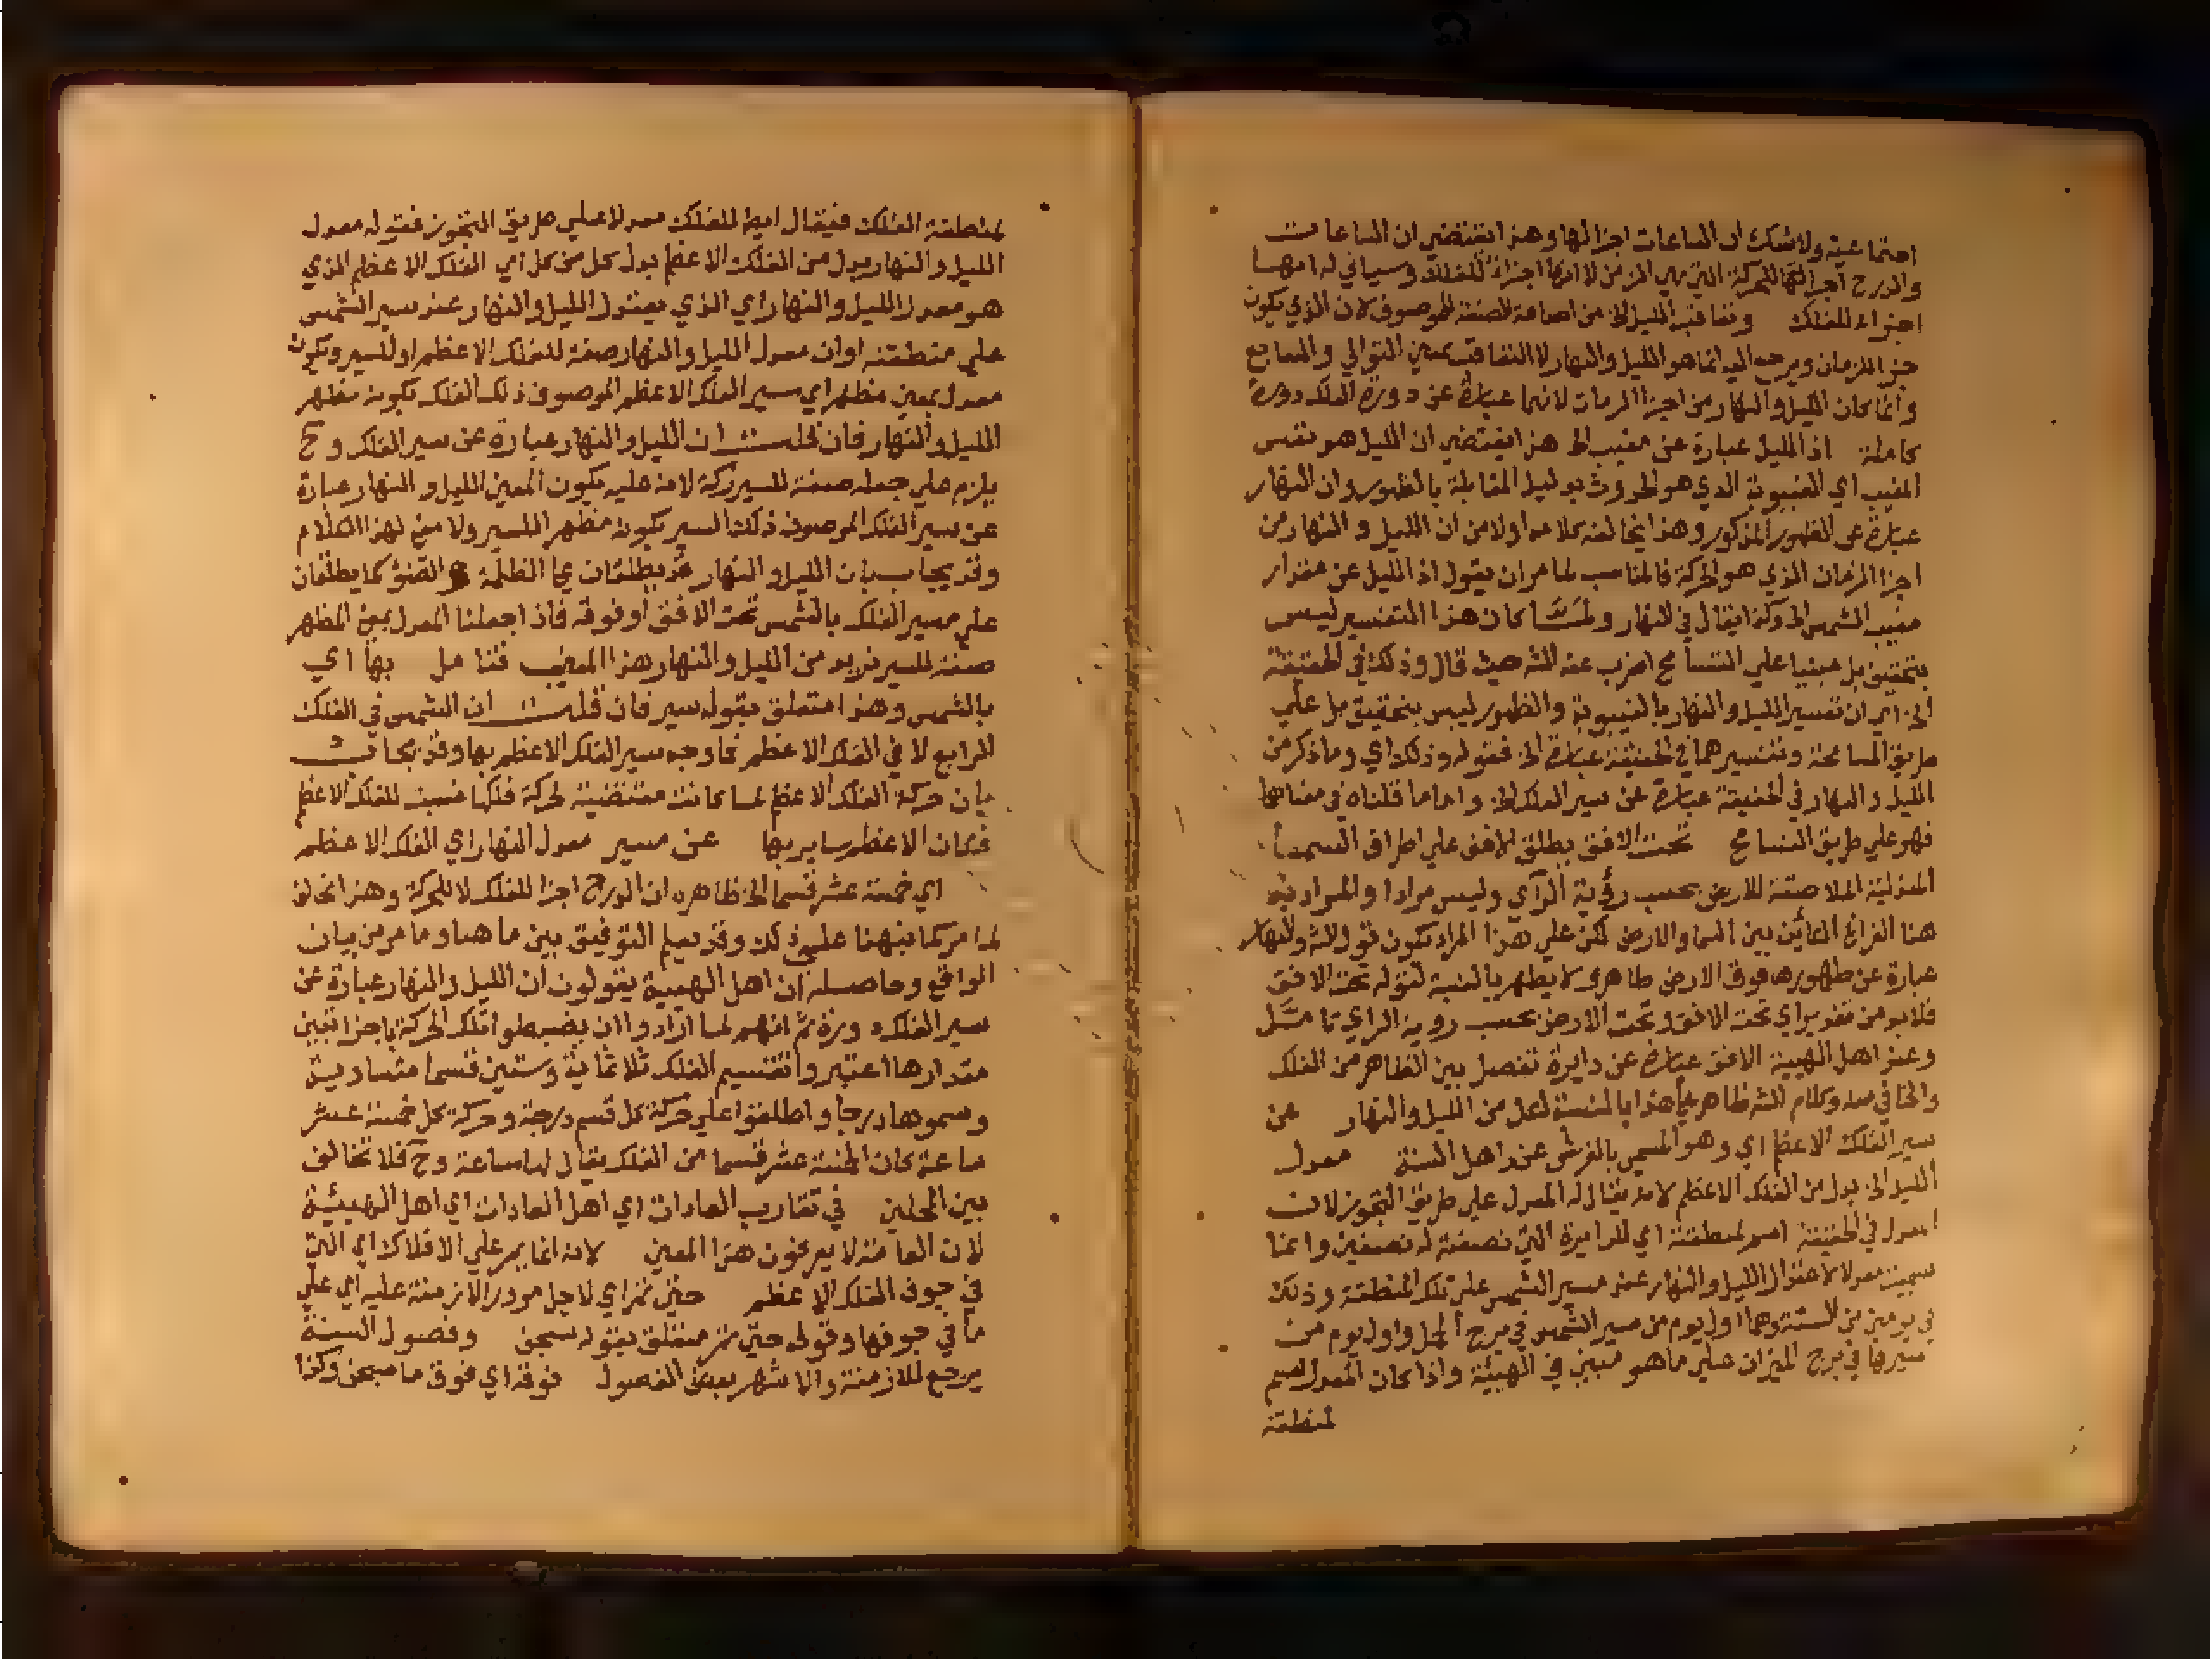 اجتماعية ولا شك ان الساعات اجزا لها وهذا يقتضي ان الساعات
والدرج اجزا لتلك الحركة التي هي الزمن لا انها اجزاء للفلك وسياتي له انهما
اجزاء للفلك وتعاقب الليل الخ من اضافة الصفة للموصوف لان الذي يكون
جزا للزمان ويرجع اليه انما هو الليل والنهار لا التعاقب بمعني التوالي والتتابع
وانما كان الليل والنهار من اجزا الزمان لانهما عبارة عن دورة الفلك دورة
كاملة اذ الليل عبارة عن مغيب الخ هذا يقتضي ان الليل هو نفس
المغيب اي الغيبوبة الذي هو الحدوث بدليل المقابلة بالظهور وان النهار
عبارة عن الظهور المذكور وهذا يخالف كلامه اولا من ان الليل و النهار من
اجزا الزمان الذي هو الحركة فالمناسب لما مر ان يقول اذ الليل عن مقدار
مغيب الشمس الخ وكذا يقال في النهار ولما كان هذا التفسير ليس
بتحقيق بل مبنيا علي التسامح اضرب عنه الشه حيث قال وذلك في الحقيقة
الخ اي ان تفسير الليل والنهار بالغيبوبة والظهور ليس بتحقيق بل علي
طريق المسامحة وتفسيرهما في الحقيقة عبارة الخ فقوله وذلك اي وما ذكر من
الليل والنهار في الحقيقة عبارة عن سير الفلك الخ واما ما قلناه في معناهما
فهو علي طريق التسامح تحت الافق يطلق الافق علي اطراف السما
المنزلية الملاصقة للارض بحسب رؤية الرآي وليس مرادا والمراد به
هنا الفراغ الكائن بين السما والارض لكن علي هذا المراد يكون قول الشه والنهار
عبارة عن ظهورها فوق الارض ظاهر ولا يظهر بالنسبة لقوله تحت الافق
فلا بد من تقدير اي تحت الافق وتحت الارض بحسب روية الراي تامل
وعند اهل الهيية الافق عبارة عن دايرة تفصل بين الظاهر من الفلك
والخافي منه وكلام الشه ظاهر علي هذا بالنسبة لكل من الليل والنهار عن
سير الفلك الاعظم اي وهو المسمي بالعرش عند اهل السنة معدل
الليل الخ بدل من الفلك الاعظم لانه يقال له المعدل علي طريق التجوز لان
المعدل في الحقيقة اسم لمنطقته اي للدايرة التي نصفته له نصفين وانما
سميت معدلا لاعتدال الليل والنهار عند مسير الشمس علي تلك المنطقة وذلك
في يومين من السنة وهما اول يوم من مسير الشمس في برج الحمل واول يوم من
سيرها في برج الميزان علي ما هو مبين في الهيئة واذا كان المعدل اسم
لمنطقة
لمنطقة الفلك فيقال ايضا للفلك معدلا علي طريق التجوز فقوله معدل
الليل والنهار بدل من الفلك الاعظم بدل كل من كل اي الفلك الاعظم الذي
هو معدل الليل والنهار اي الذي يعتدل الليل والنهار عند سير الشمس
علي منطقته او ان معدل الليل والنهار صفة للفلك الاعظم او للسير ويكون
معدل بمعني مظهر اي سير الفلك الاعظم الموصوف ذلك الفلك بكونه مظهر
الليل والنهار فان قلت ان الليل والنهار عبارة عن سير الفلك وح
يلزم علي جعله صفة للسير ركة لانه عليه يكون المعني الليل و النهار عبارة
عن سير الفلك الموصوف ذلك السير بكونه مظهر السير ولا معني لهذا الكلام
وقد يجاب بان الليل والنهار قد يطلقان علي الظلمة والضؤ كما يطلقان
علي مسير الفلك بالشمس تحت الافق او فوقه فاذا جعلنا المعدل بمعني المظهر
صفة للسير نريد من الليل والنهار هذا المعني فتامل بها اي
بالشمس وهذا متعلق بقوله سير فان قلت ان الشمس في الفلك
الرابع لا في الفلك الاعظم فما وجه سير الفلك الاعظم بها وقد يجاب
بان حركة الفلك الاعظم لما كانت مقتضية لحركة فلكها نسبت للفلك الاعظم
فكان الاعظم ساير بها عن مسير معدل النهار اي الفلك الاعظم
اي خمسة عشر قسما الخ ظاهره ان الدرج اجزا للفلك لا للحركة وهذا يخالف
لما مر كما نبهنا علي ذلك وقد يعلم التوفيق بين ما هنا وما مر من بيان
الواقع وحاصله ان اهل الهيية يقولون ان الليل والنهار عبارة عن
سير الفلك دورة ثم انهم لما ارادوا ان يضبطوا تلك الحركة باجزا تبين
مقدارها اعتبروا تقسيم الفلك ثلاثماية وستين قسما متساوية
وسموها درجا واطلقوا علي حركة كل قسم درجة وحركة كل خمسة عشر
ساعة كان الخمسة عشر قسما من الفلك يقال لها ساعة وح فلا تخالف
بين المحلين في تقاريب العادات اي اهل العادات اي اهل الهيئة
لان العامة لا يعرفون هذا المعني لانه انما يمر علي الافلاك اي التي
في جوف الفلك الاعظم حتي تمر اي لاجل مرور الازمنة عليه اي علي
ما في جوفها وقوله حتي تمر متعلق بقوله سجن وفصول السنة
يرجع للازمنة والاشهر بمعني الفصول فوقه اي فوق ما سجن وكذا